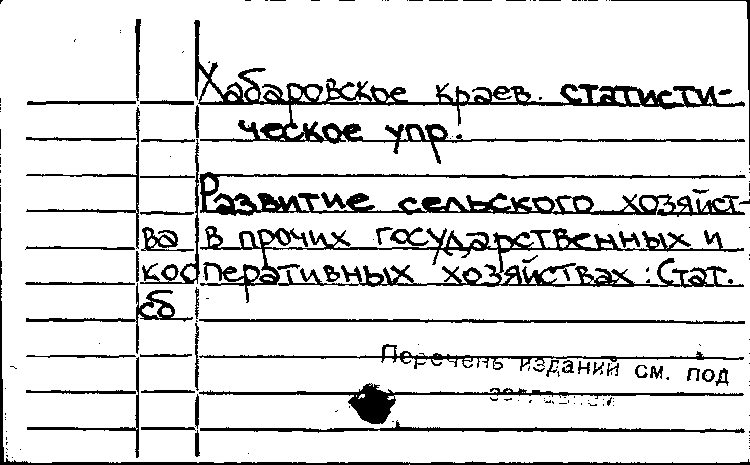 Хабаровское краев. статисти-
ческое упр.
Развитие сельского хозяйст-
ва в прочих государственных и
кооперативных хозяйствах : Стат.
сб
Перечень изданий см. под
заглавием